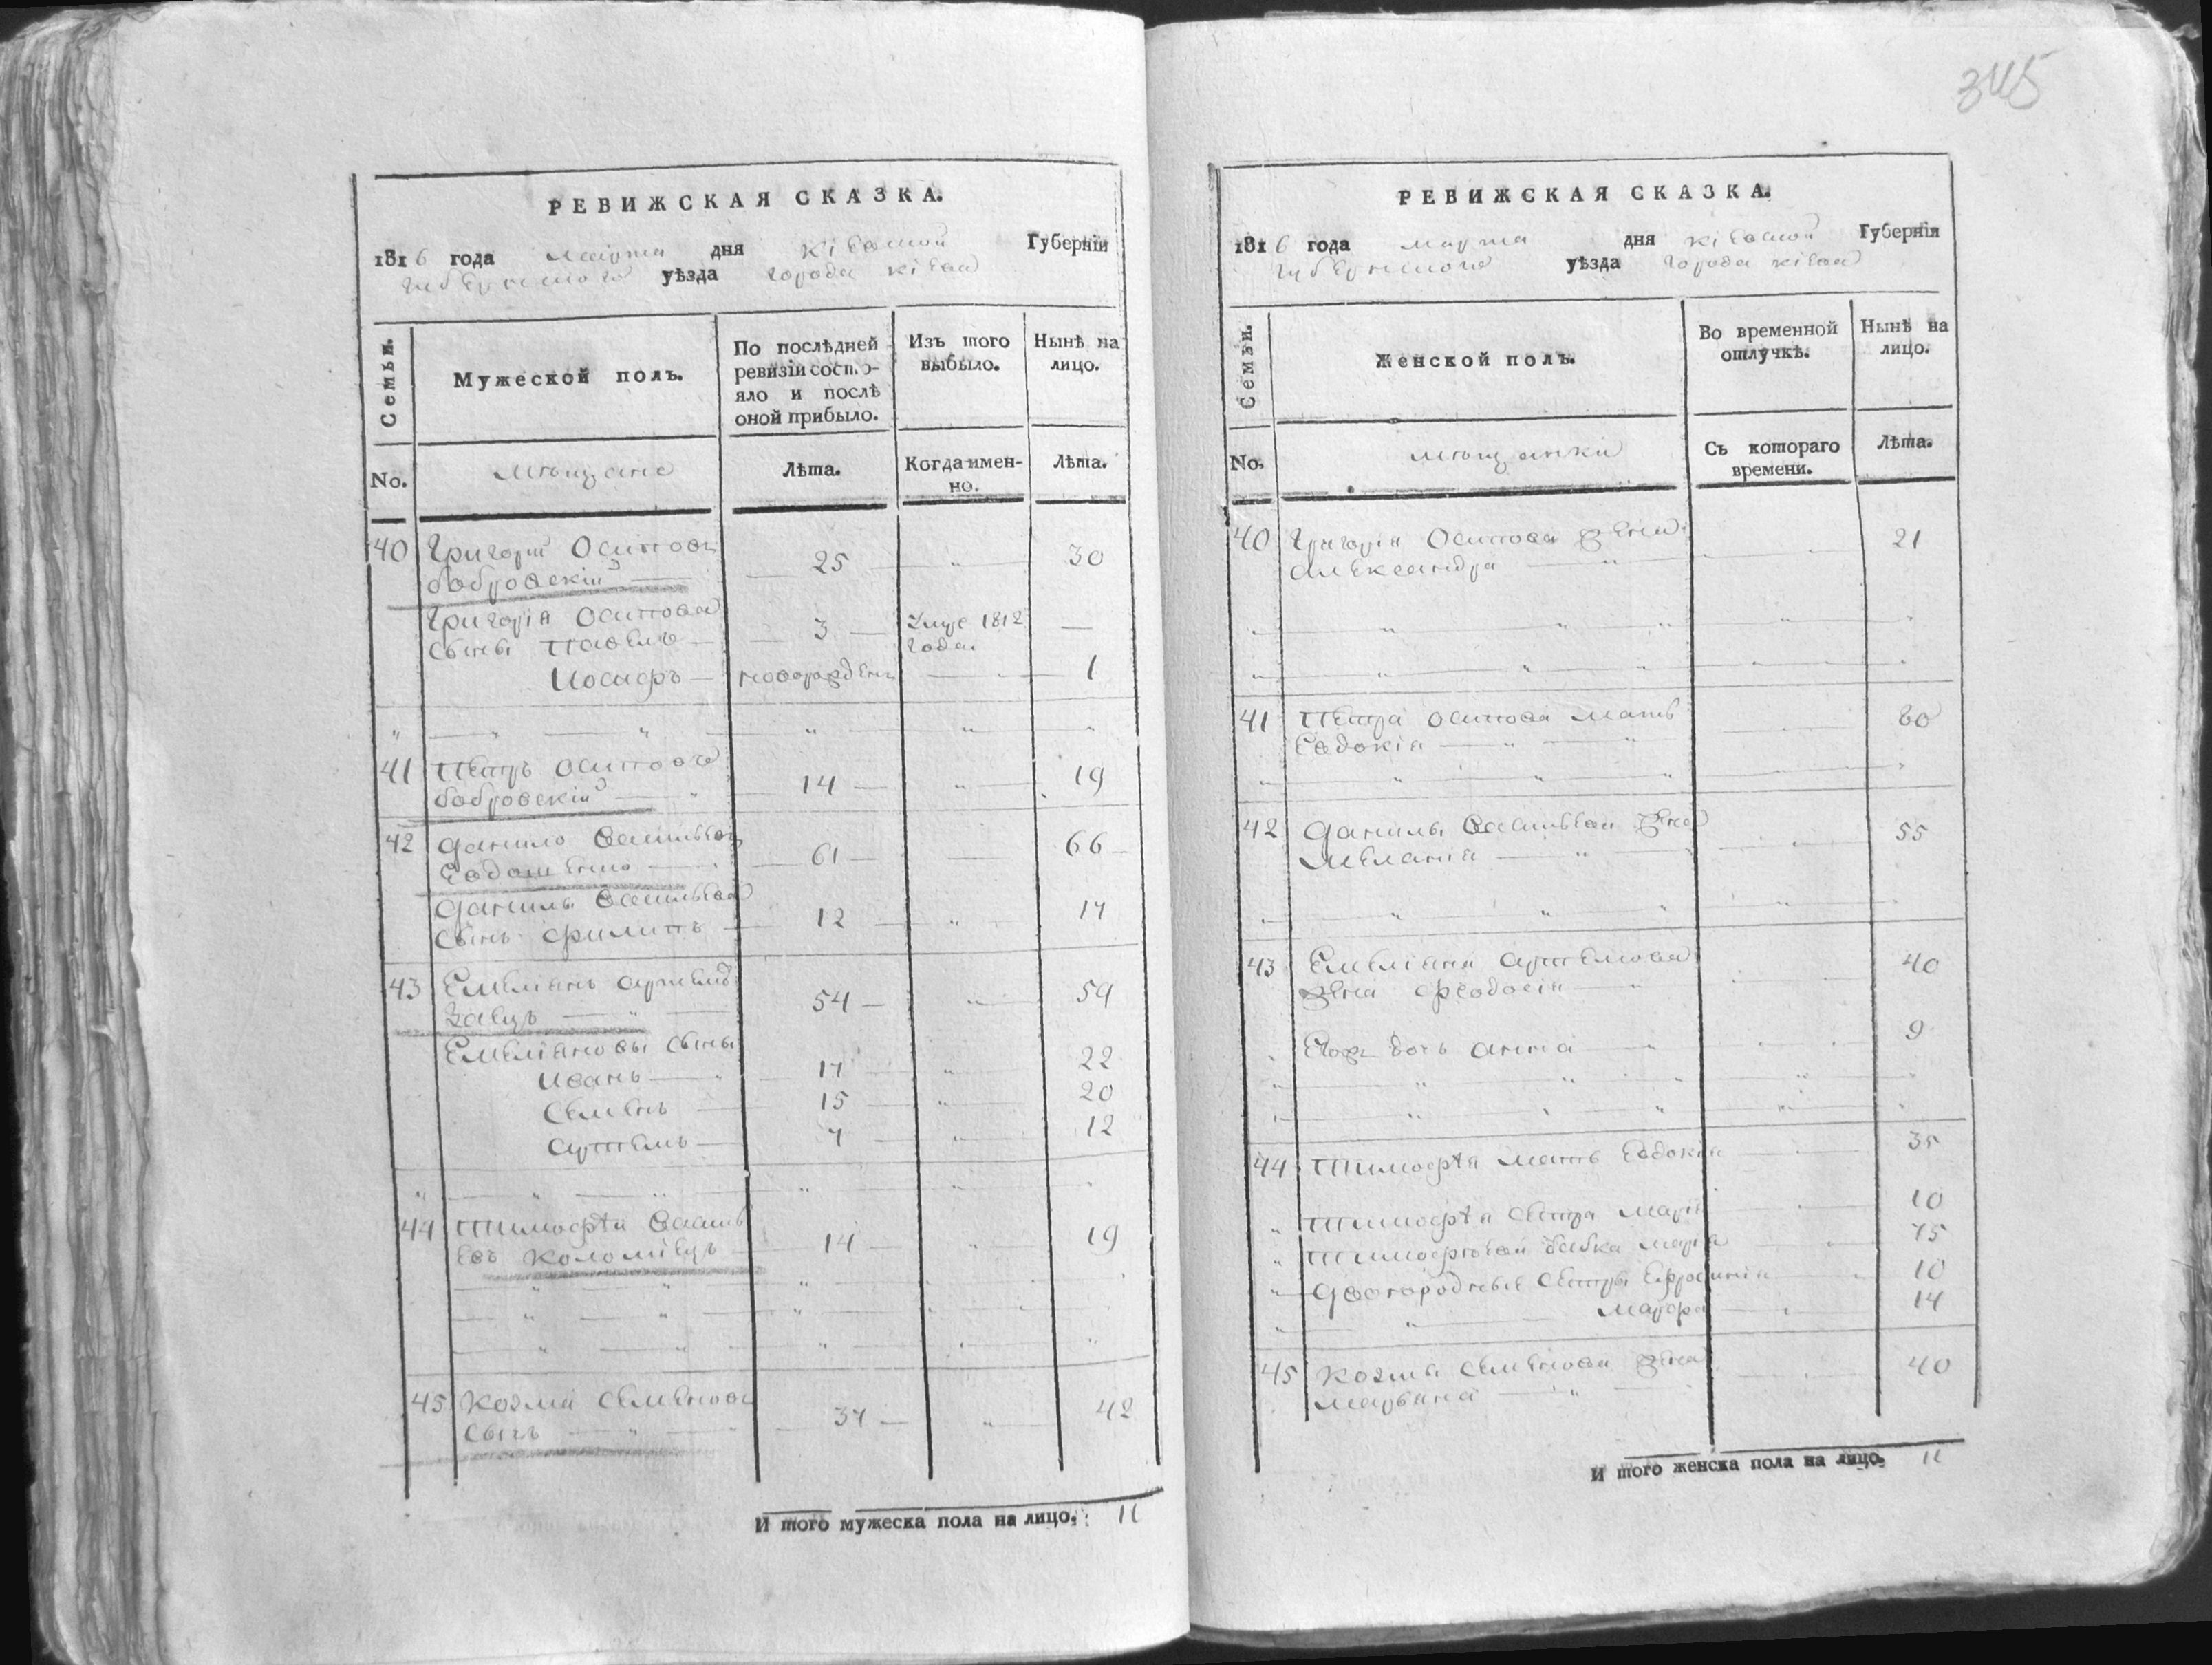 345
РЕВИЖСКАЯ СКАЗКА.
1816 года марта дня Кіевской Губерніи
губернского уѣзда города Кіева
Семьи.
Мужеской полъ.
По послѣдней ревизіи состояло и послѣ оной прибыло.
Изъ того выбыло.
Нынѣ на лицо.
No.
мѣщане
Лѣта.
Когда имен-но.
Лѣта.
40 Григорій Осиповъ
бобровскій 25 30
Григорія Осипова
сыны Павелъ 3 умре 1812 года
Иосифъ новорожденъ 1
41 Петръ Осиповъ
бобровскій 14 19
42 Данило Васильевъ
Евдошенко 61 66
Данилы Васильева
сынъ Филипъ 12 17
43 Емелианъ Артемовъ
Заецъ 54 59
Емелиановы сыны
Иванъ 17 22
Семенъ 15 20
Артемъ 7 12
44 Тимофѣй Василь
евъ Коломiецъ 14 19
45 Козма Семеновъ
Сычъ 37 42
И того мужеска пола на лицо. 11
РЕВИЖСКАЯ СКАЗКА.
1816 года марта дня Кіевской Губерніи
губернского уѣзда города Кіева
Семьи.
Женской полъ.
Во временной отлучкѣ.
Нынѣ на лицо.
No.
мѣщанки
Съ котораго времени.
Лѣта.
40 Григорія Осипова жена
Александра 21
41 Петра Осипова мать
Евдокія 60
42 Данилы Васильева жена
Меланія 55
43 Емеліана Артемова
жена Феодосія 40
Его дочь Анна 9
44 Тимофѣя мать Евдокія 35
Тимофѣя сестра Марія 10
Тимофѣева бабка Марія 75
Двоюродные сестры Ефросинія 10
Марфа 14
45 Козмы Семенова жена
Марьяна 40
И того женска пола на лицо. 11